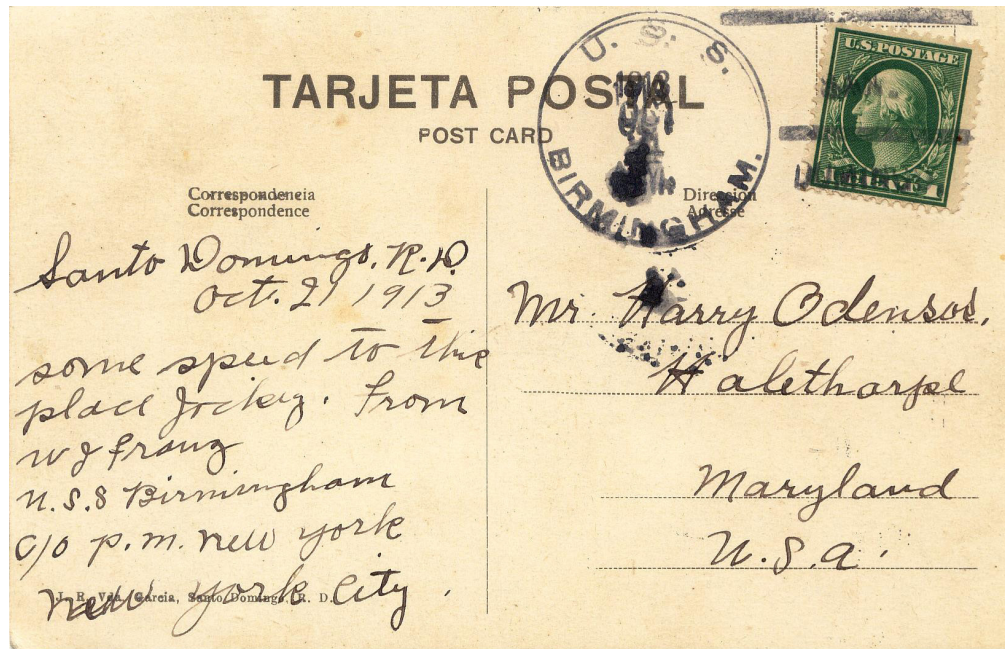 TARJETA POSTAL
POST CARD
U. S. S.
1913
OCT
BIRMINGHAM.
U.S. POSTAGE
SAN.
1 CENT 1
Correspondencia
Correspondence
Dirección
Adresse
Santo Domingo, R.D.
Oct. 21 1913
some speed to this
place Jockey. From
W J Franz
U.S.S Birmingham
C/o P.M. New York
New York City.
J. R. Vda. García, Santo Domingo, R. D.
Mr. Harry Odensos,
Halethorpe
Maryland
U.S.a.